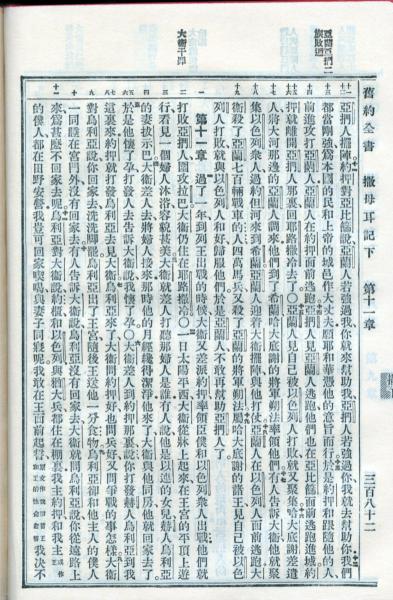 舊約全書 撒母耳記下 第十一章 三百八十二
亞捫人擺陣約押對亞比篩說亞蘭人若強過我你就來幫助我亞捫人若強過你我就去幫助你我們
都當剛強爲本國的民和上帝的城邑作大丈夫願耶和華憑他的意旨而行於是約押和跟隨他的人
前進攻打亞蘭人亞蘭人在約押面前逃跑亞捫人見亞蘭人逃跑他們也在亞比篩面前逃跑進城約
押就離開亞捫人那裏回耶路撒冷去了○亞蘭人見自己被以色列人打敗就又聚集哈大底謝差遣
人將大河那邊的亞蘭人調來他們到了希蘭哈大底謝的將軍朔法率領他們有人告訴大衛他就聚
集以色列衆人過約但河來到希蘭亞蘭人迎着大衛擺陣與他打仗亞蘭人在以色列人面前逃跑大
衛殺了亞蘭七百輛戰車的人四萬馬兵又殺了亞蘭的將軍朔法屬哈大底謝的諸王見自己被以色
列人打敗就與以色列人和好歸服他們於是亞蘭人不敢再幫助亞捫人了
第十一章 過了一年到列王出戰的時候大衛又差派約押率領臣僕和以色列衆人出戰他們就
打敗亞捫人圍攻拉巴大衛仍住在耶路撒冷○一日太陽平西大衛從牀上起來在王宮的平頂上遊
行看見一個婦人沐浴容貌甚美大衛就差人打聽那婦人是誰有人說他是以連的女兒赫人烏利亞
的妻拔示巴大衛差人去將婦人接來那時他的月經纔得潔淨他來了大衛與他同房他就回家去了
於是他懷了孕打發人去告訴大衛說我懷了孕○大衛差人到約押那裏說你打發赫人烏利亞到我
這裏來約押就打發烏利亞去見大衛烏利亞來了大衛問約押好也問兵好又問爭戰的事怎樣大衛
對烏利亞說你回家去洗洗腳罷烏利亞出了王宮隨後王送他一分食物烏利亞卻和他主人的僕人
一同睡在宮門外沒有回家去有人告訴大衛說烏利亞沒有回家去大衛就問烏利亞說你從遠路上
來爲甚麼不回家去呢烏利亞對大衛說約櫃和以色列與猶大兵都住在棚裏我主約押和我主或作王
的僕人都在田野安營我豈可回家喫喝與妻子同寢呢我敢在王面前起誓我決不